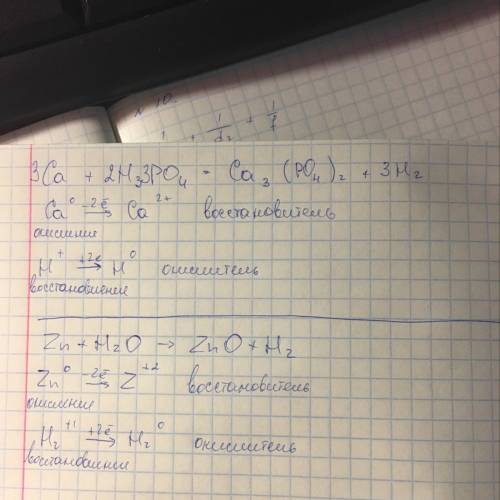 № 10.
1 + 1/d2 + 1/f
3Ca + 2H₃3PO₄ = Ca₃(PO₄)₂ + 3H₂
Ca⁰ –2ē→ Ca²⁺ восстановитель
окисление
H⁺ +2ē→ H⁰ окислитель
восстановление
Zn + H₂O → ZnO + H₂
Zn⁰ –2ē→ Z⁺² восстановитель
окисление
H₂⁺¹ +2ē→ H₂⁰ окислитель
восстановление